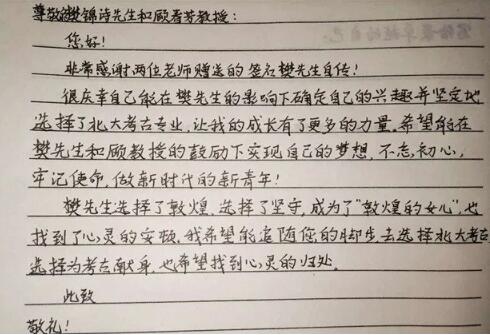 尊敬的樊锦诗先生和顾春芳教授:
您好!
非常感谢两位老师赠送的签名樊先生自传!
很庆幸自己能在樊先生的影响下确定自己的兴趣并坚定地
选择了北大考古专业,让我的成长有了更多的力量,希望能在
樊先生和顾教授的鼓励下实现自己的梦想,不忘初心,
牢记使命,做新时代的新青年!
樊先生选择了敦煌,选择了坚守,成为了"敦煌的女儿",也
找到了心灵的安顿,我希望能追随您的脚步,去选择北大考古
选择为考古献身,也希望找到心灵的归处.
此致
敬礼!